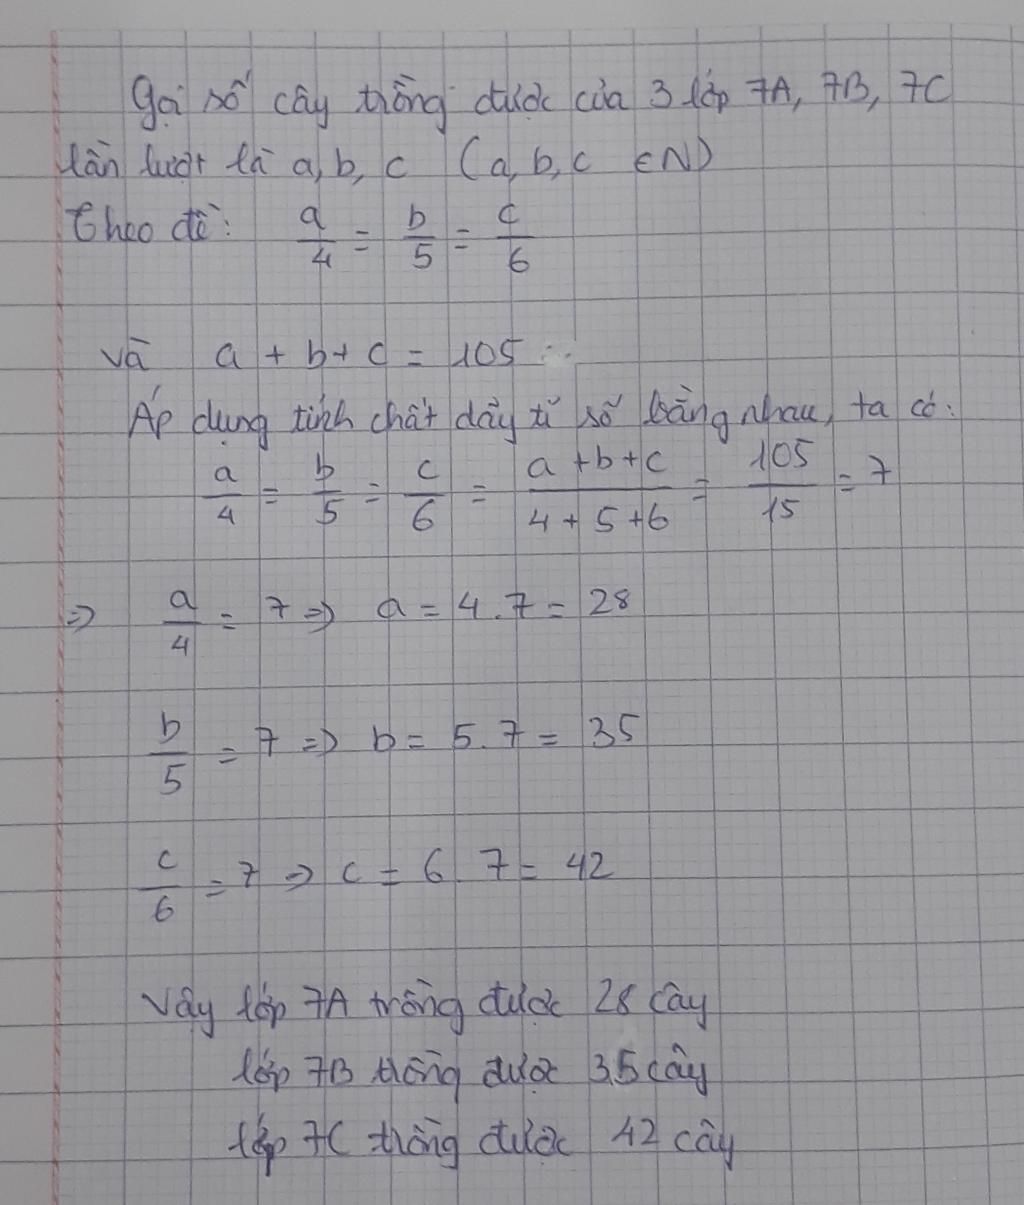 Gọi số cây trồng được của 3 lớp 7A, 7B, 7C
lần lượt là a, b, c (a, b, c ∈ N)
Theo đề: a/4 = b/5 = c/6
và a + b + c = 105
Áp dụng tính chất dãy tỉ số bằng nhau, ta có:
a/4 = b/5 = c/6 = (a + b + c)/(4 + 5 + 6) = 105/15 = 7
=> a/4 = 7 => a = 4.7 = 28
b/5 = 7 => b = 5.7 = 35
c/6 = 7 => c = 6.7 = 42
Vậy lớp 7A trồng được 28 cây
lớp 7B trồng được 35 cây
lớp 7C trồng được 42 cây